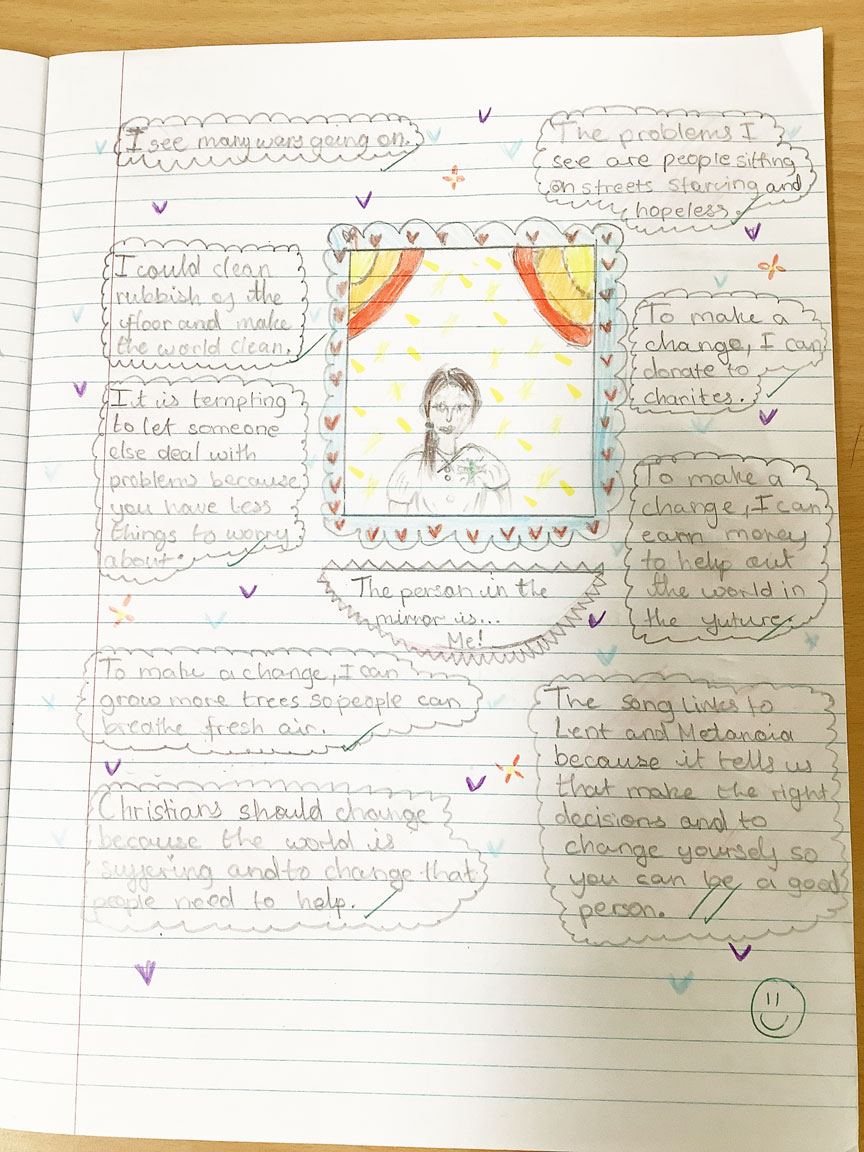 I see many wars going on.
The problems I
see are people sitting
on streets starving and
hopeless.
I could clean
rubbish of the
floor and make
the world clean.
To make a
change, I can
donate to
charites.
It is tempting
to let someone
else deal with
problems because
you have less
things to worry
about.
To make a
change, I can
earn money
to help out
the world in
the future.
The person in the
mirror is...
Me!
To make a change, I can
grow more trees so people can
breathe fresh air.
The song links to
Lent and Metanoia
because it tells us
that make the right
decisions and to
change yourself so
you can be a good
person.
Christians should change
because the world is
suffering and to change that
people need to help.